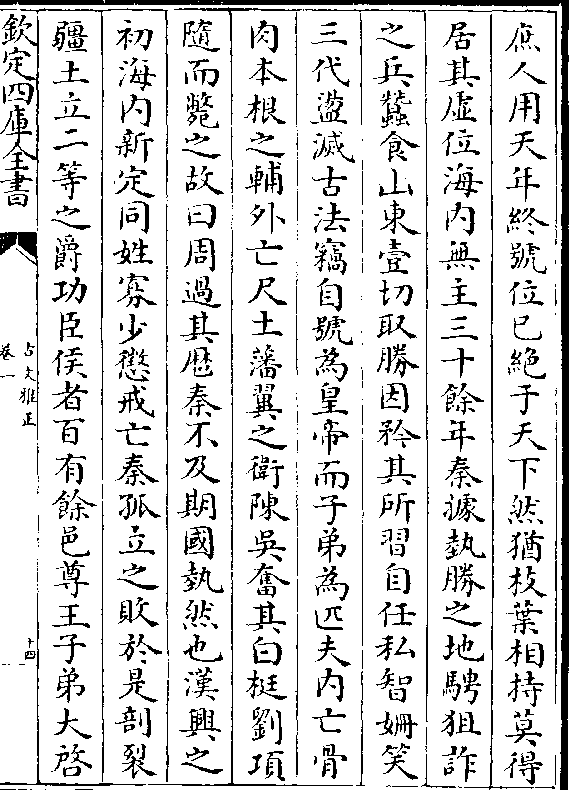 庶人用天年終號位已絶于天下然猶枝葉相持莫得
居其虚位海内無主三十餘年秦據埶勝之地騁狙詐
之兵蠶食山東壹切取勝因矜其所習自任私智姍笑
三代盪滅古法竊自號為皇帝而子弟為匹夫内亡骨
肉本根之輔外亡尺土藩翼之衛陳吳奮其白梃劉項
隨而斃之故曰周過其厯秦不及期國埶然也漢興之
初海内新定同姓寡少懲戒亡秦孤立之敗於是剖裂
疆土立二等之爵功臣侯者百有餘邑尊王子弟大啓
欽定四庫全書
古文雅正
卷一
十四